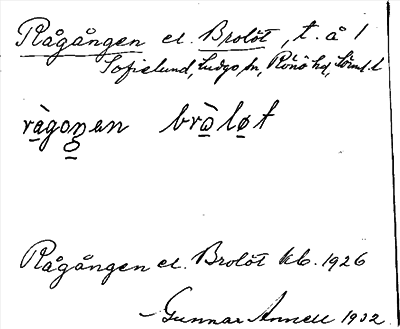 Rågången el. Brolöt, t. å 1
Sofielund, Ludgo sn, Rönö hd, Sörml. l.
ràgoŋen bròløt
Rågången el. Brolöt kb. 1926
Gunnar Annell 1932.